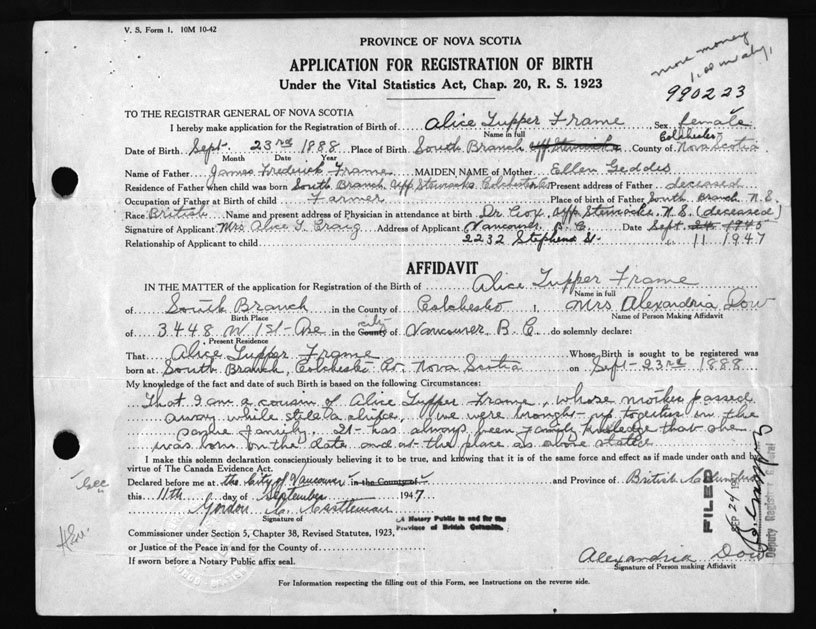 V. S. Form 1. 10M 10-42
PROVINCE OF NOVA SCOTIA
APPLICATION FOR REGISTRATION OF BIRTH
Under the Vital Statistics Act, Chap. 20, R. S. 1923
more money
990223
TO THE REGISTRAR GENERAL OF NOVA SCOTIA
I hereby make application for the Registration of Birth of Alice Tupper Frame Sex female
Name in full
Date of Birth Sept. 23rd 1888 Place of Birth South Branch County of Colchester Nova Scotia
Month Date Year
Name of Father James Frederick Frame MAIDEN NAME of Mother Ellen Geddes
Residence of Father when child was born South Branch Upp Stewiacke Colchester Co Present address of Father deceased
Occupation of Father at Birth of child Farmer Place of birth of Father South Branch N.S.
Race British Name and present address of Physician in attendance at birth Dr. Cox, Upp. Stewiacke, N.S. (deceased)
Signature of Applicant Mrs Alice T. Craig Address of Applicant Vancouver B.C. Date Sept. 24 1945
Relationship of Applicant to child 2232 Stephens St. " 11 1947
AFFIDAVIT
IN THE MATTER of the application for Registration of the Birth of Alice Tupper Frame
Name in full
of South Branch in the County of Colchester I, Mrs Alexandria Dow
Birth Place Name of Person Making Affidavit
of 3448 W 1st Ave in the County city of Vancouver B C do solemnly declare:
Present Residence
That Alice Tupper Frame Whose Birth is sought to be registered was
born at South Branch, Colchester Co. Nova Scotia on Sept 23rd 1888
My knowledge of the fact and date of such Birth is based on the following Circumstances:
That I am a cousin of Alice Tupper Frame, whose mother passed
away while still a , & we were brought up together in the
same family. It has always been family knowledge that she
was born on the date and at the place as above stated
I make this solemn declaration conscientiously believing it to be true, and knowing that it is of the same force and effect as if made under oath and by
virtue of The Canada Evidence Act.
Declared before me at the City of Vancouver in the County of and Province of British Columbia
this 11th day of September 1947
Gordon
Signature of A Notary Public in and for the
Province of British Columbia.
Commissioner under Section 5, Chapter 38, Revised Statutes, 1923,
or Justice of the Peace in and for the County of
If sworn before a Notary Public affix seal.
Alexandria Dow
Signature of Person making Affidavit
For Information respecting the filling out of this Form, see Instructions on the reverse side.
FILED
SEP 24
Deputy Registrar General